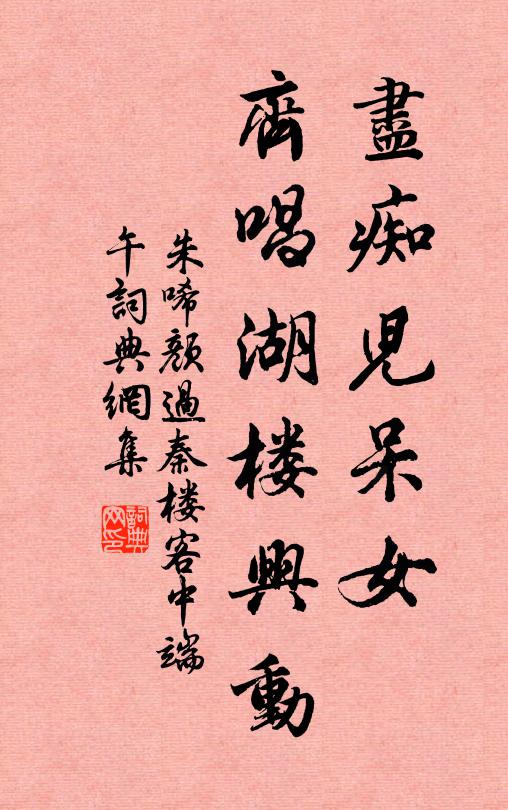 盡痴児呆女
齊唱湖楼興動
朱唏顏過秦楼客中端
午詞典網集
詞典
网印